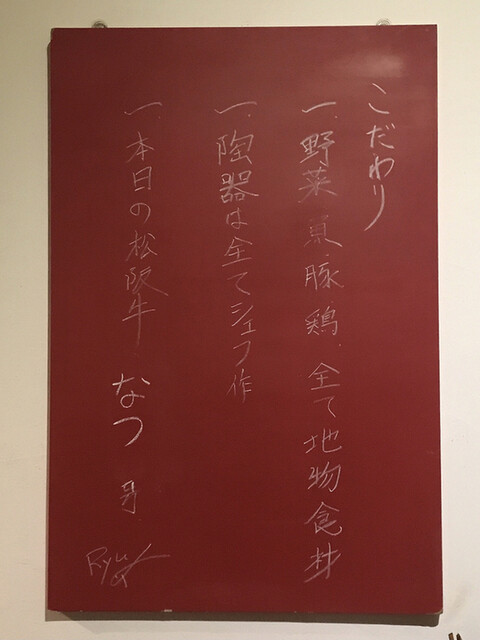 こだわり
一、野菜、魚、豚、鶏、全て地物食材
一、陶器は全てシェフ作
一、本日の松阪牛 なつ 号
Ryu